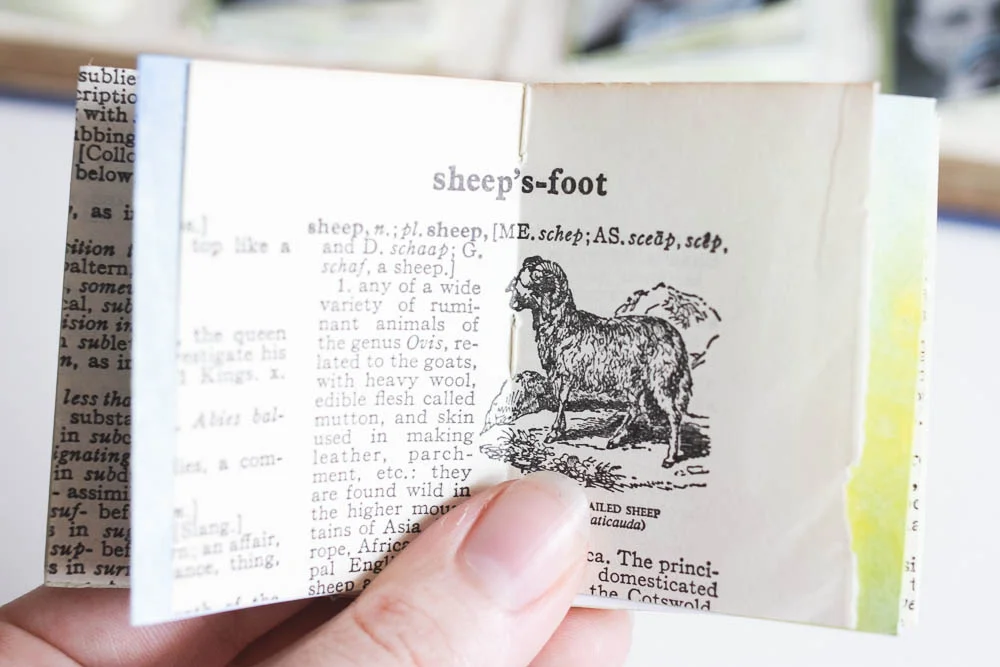 sublie
criptio
with
bbing
[Collo
below
, as i
sition
paltern,
somer
cal, sub
ision in
suble
n, as in
less tha
substa
in subc
ignating
in subd
- assimi
suf- bef
s in sug
sup- bef
s in suri
s.]
top like a
the queen
estigate his
1 Kings. x.
Abies bal-
lies, a com-
[Slang.]
; an affair,
ance, thing,
of the
sheep's-foot
sheep, n.; pl. sheep, [ME. schep; AS. sceāp, scēp,
and D. schaap; G.
schaf, a sheep.]
1. any of a wide
variety of rumi-
nant animals of
the genus Ovis, re-
lated to the goats,
with heavy wool,
edible flesh called
mutton, and skin
used in making
leather, parch-
ment, etc.: they
are found wild in
the higher moun-
tains of Asia
rope, Africa
pal Engl
sheep a
AILED SHEEP
aticauda)
ca. The princi-
domesticated
the Cotswold